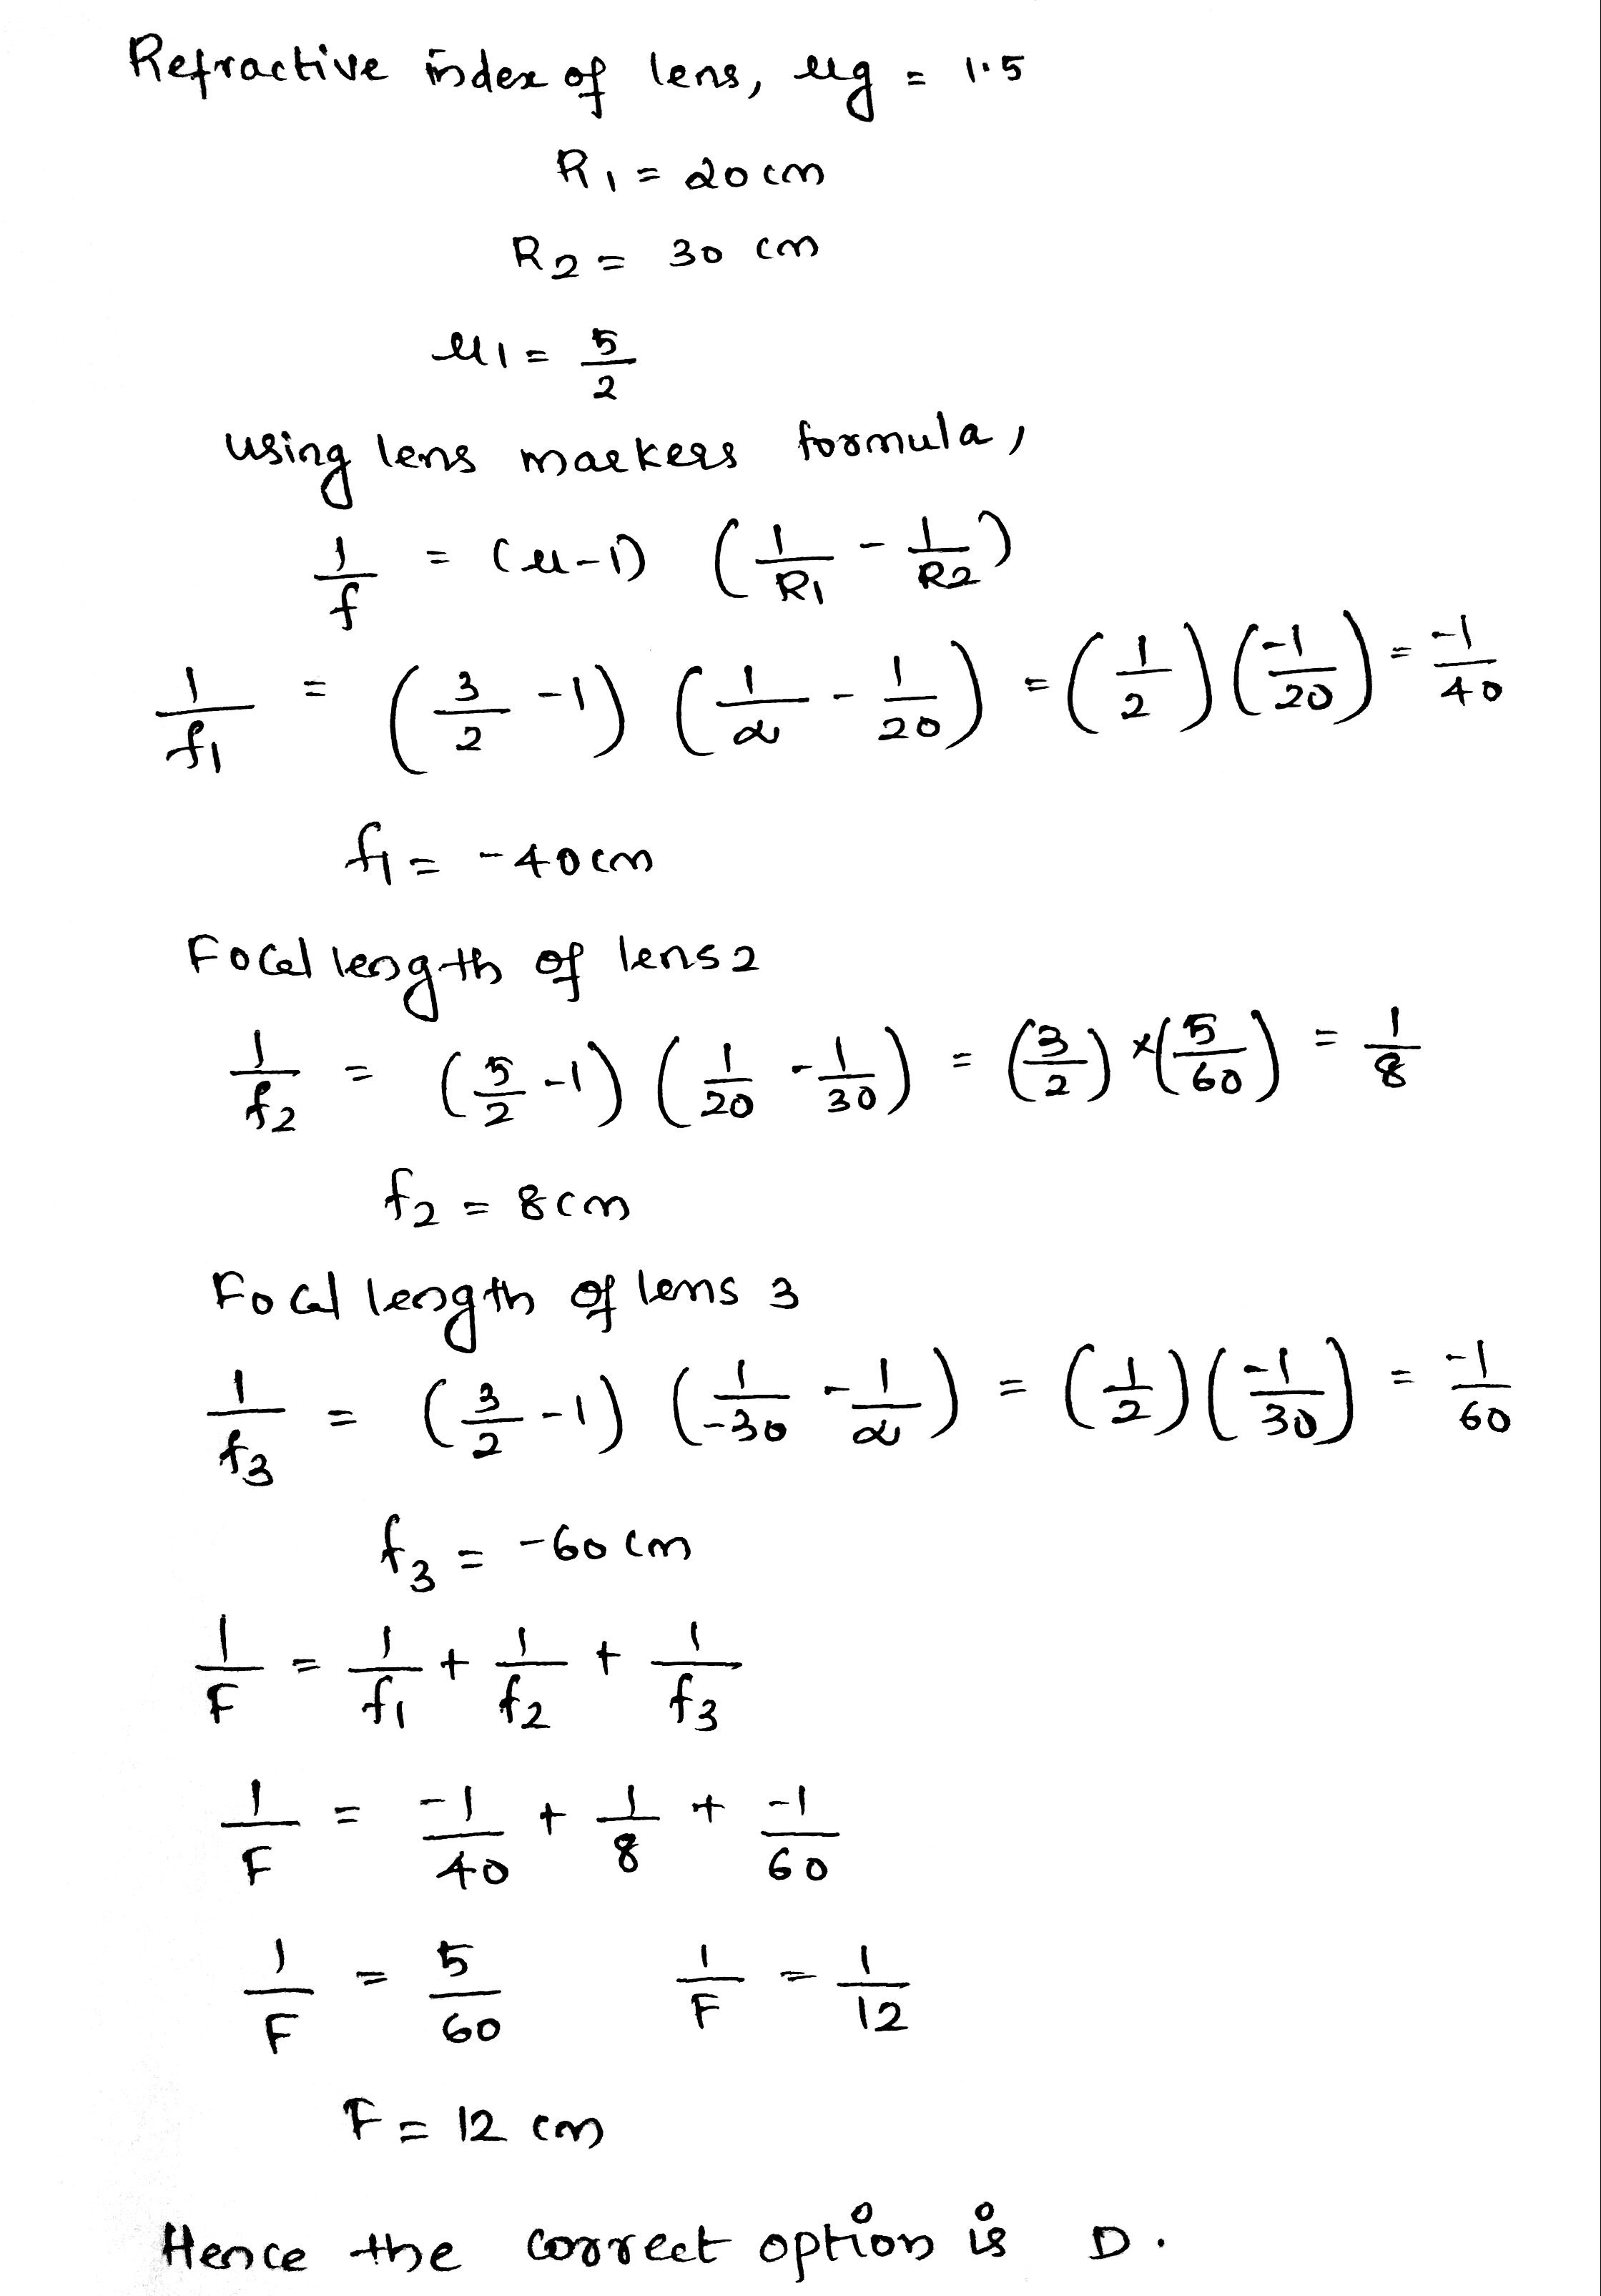 Refractive index of lens, μg = 1.5
R1 = 20cm
R2 = 30 cm
μ1 = 5/2
using lens markers formula,
1/f = (μ-1) (1/R1 - 1/R2)
1/f1 = (3/2 -1) (1/∞ - 1/20) = (1/2) (-1/20) = -1/40
f1 = -40cm
Focal length of lens 2
1/f2 = (5/2 -1) (1/20 - -1/30) = (3/2) × (5/60) = 1/8
f2 = 8cm
Focal length of lens 3
1/f3 = (3/2 -1) (1/-30 - 1/∞) = (1/2) (-1/30) = -1/60
f3 = -60cm
1/F = 1/f1 + 1/f2 + 1/f3
1/F = -1/40 + 1/8 + -1/60
1/F = 5/60 1/F = 1/12
F = 12 cm
Hence the correct option is D.